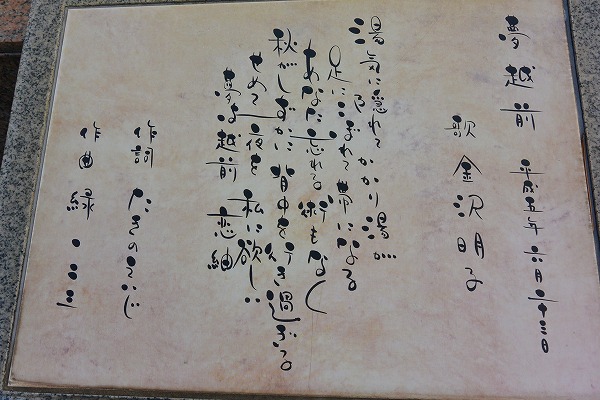 夢越前 平成五年六月二十三日
歌 金沢明子
湯気に隠れて かかり湯が
足にこぼれて 帯になる
あなた忘れる 術もなく
秋がしずかに 背中を行き過ぎる
せめて一夜を 私に欲しい
夢は越前 恋紬
作詞 たきのえいじ
作曲 緑 一二三